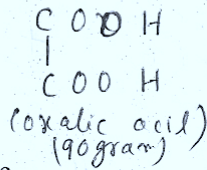 COOH
|
COO H
(oxalic acil)
(90gram)